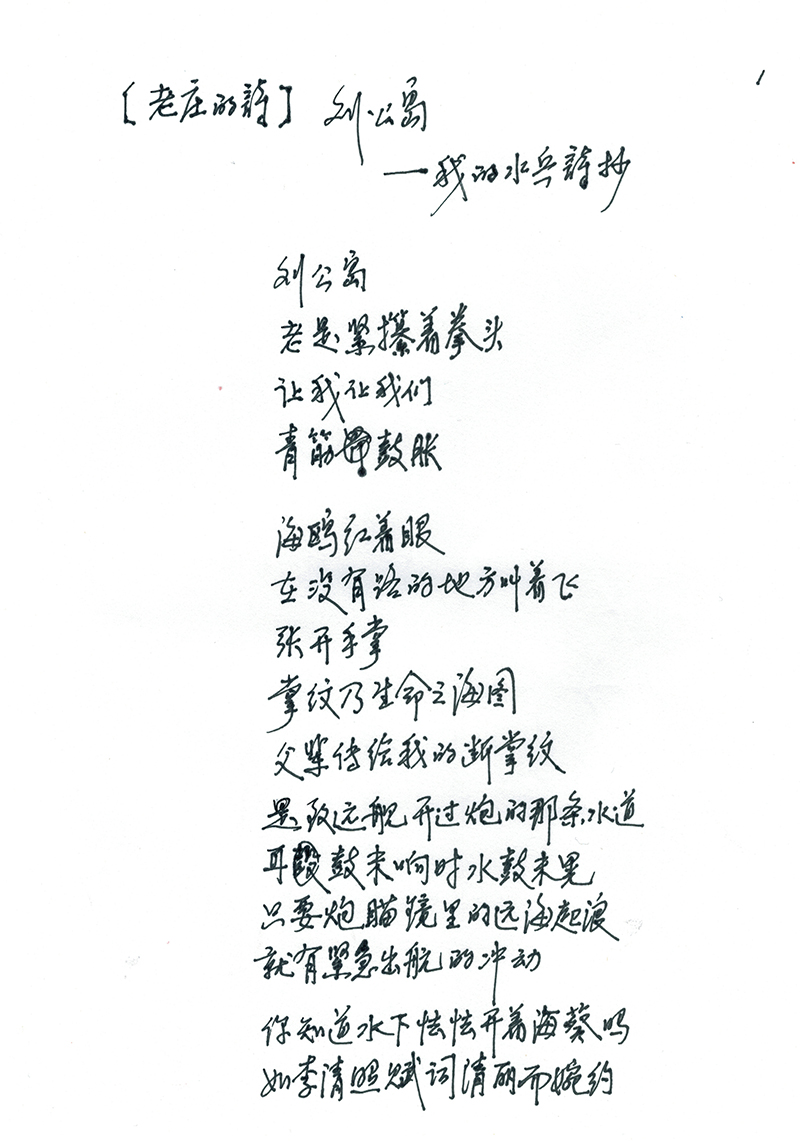 1
[老庄的詩] 刘公岛
——我的水兵詩抄
刘公岛
老是紧攥着拳头
让我让我们
青筋鼓胀
海鸥红着眼
在没有路的地方叫着飞
张开手掌
掌纹乃生命之海图
父辈传给我的断掌纹
是致远舰开过炮的那条水道
耳鼓未响时水鼓未晃
只要炮瞄镜里的远海起浪
就有紧急出航的冲动
你知道水下怯怯开着海葵吗
如李清照赋词清丽而婉约